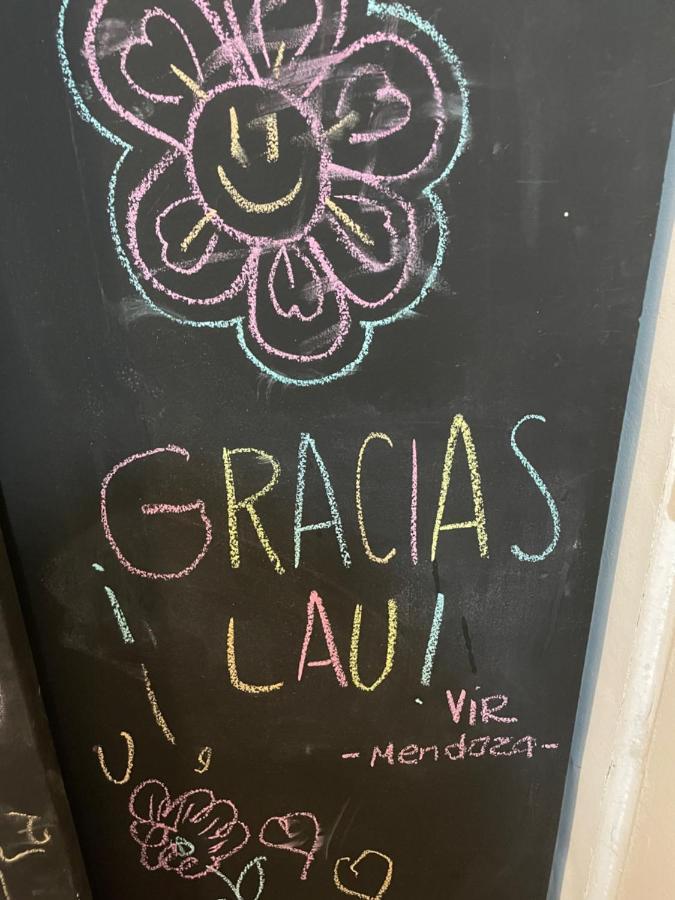 GRACIAS
¡ LAU!
VIR
- Mendoza -